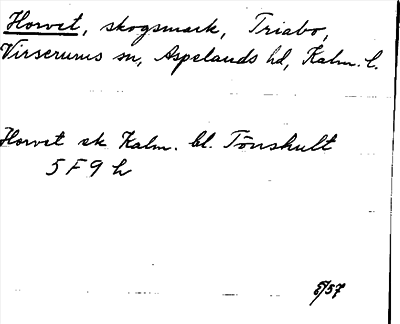 Horvet, skogsmark, Triabo,
Virserums sn, Aspelands hd, Kalm. l.
Horvet sk Kalm. bl. Tönshult
5 F 9 h
/57